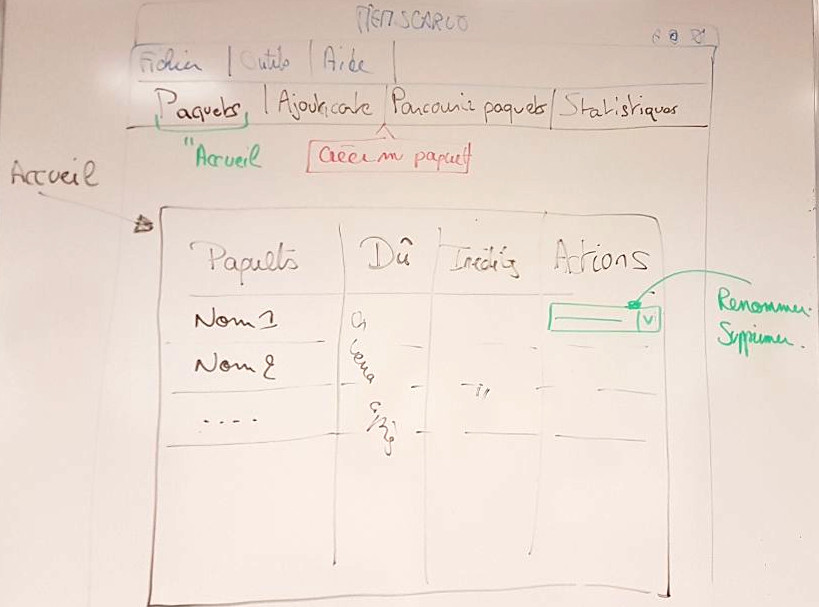 MEMSCARD
Fichier | Outils | Aide |
Paquets | Ajout carte | Parcourir paquets | Statistiques
"Accueil
Créer un paquet
Accueil
Paquets Dû Inédits Actions
Nom 1
Nom 2
....
Renommer.
Supprimer.